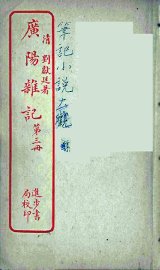 筆記小說大觀
清 劉獻廷著
廣陽雜記 第三冊
進步書
局校印